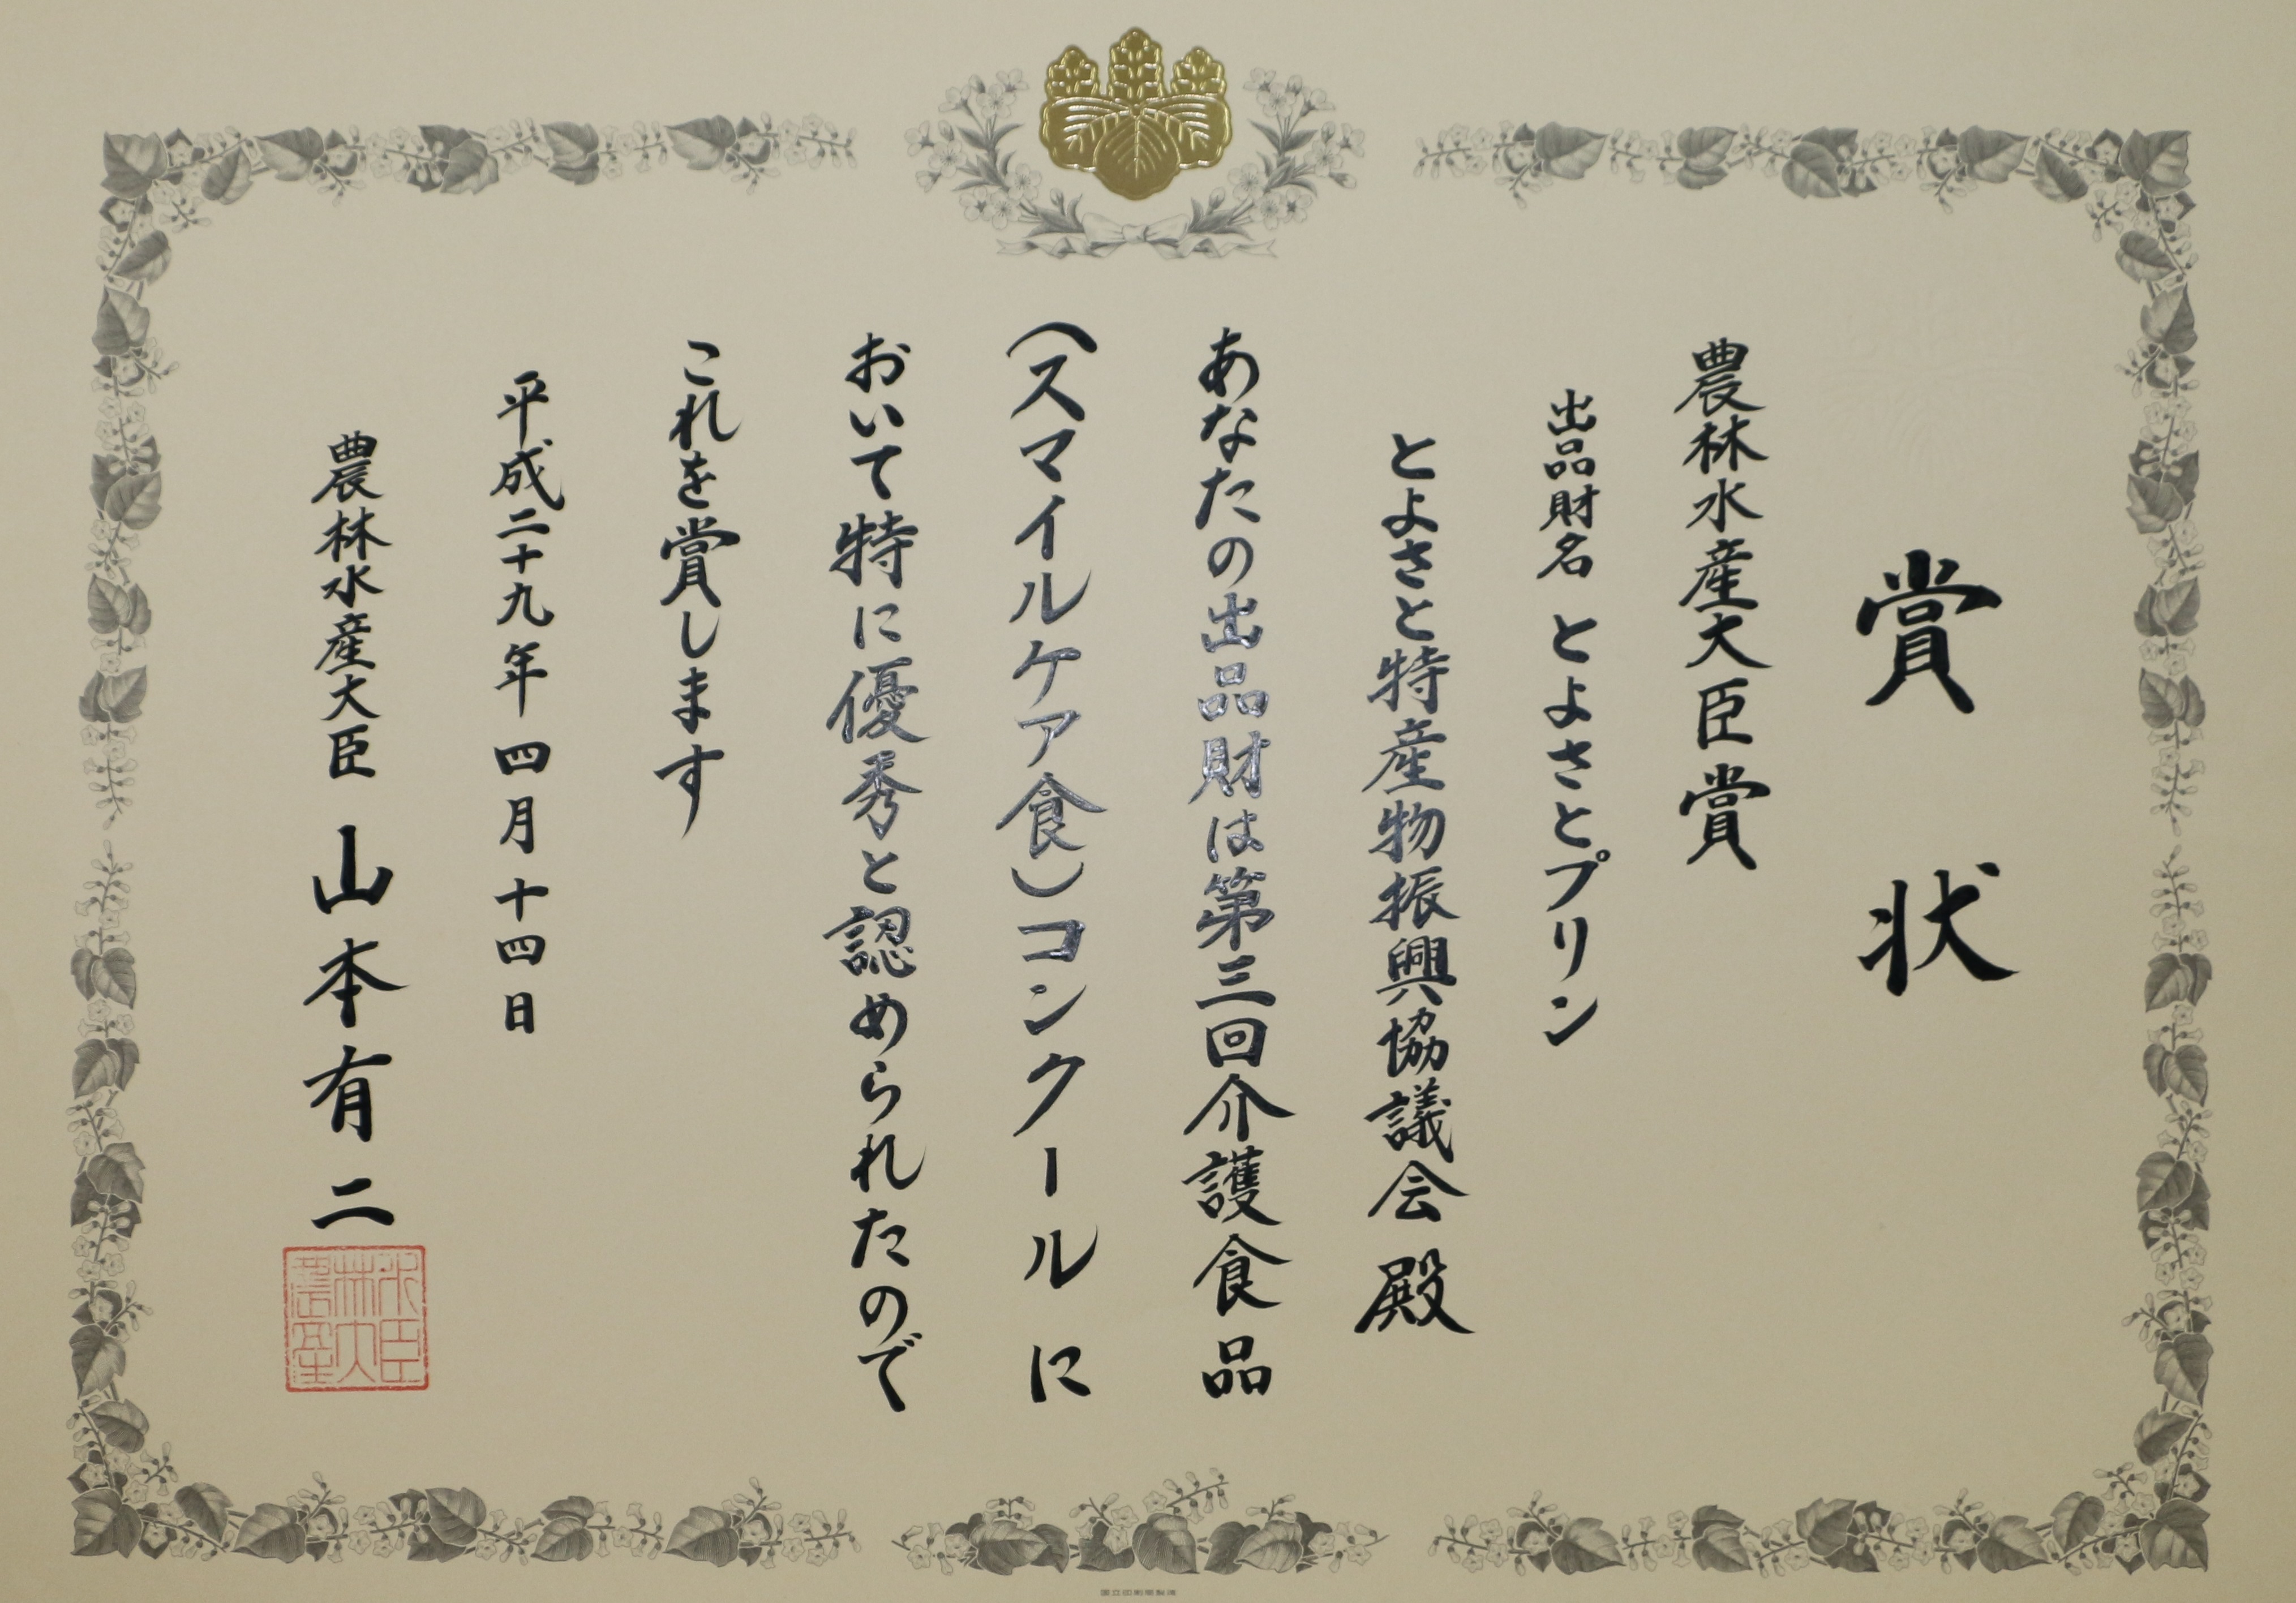 賞状
農林水産大臣賞
出品財名 とよさとプリン
とよさと特産物振興協議会 殿
あなたの出品財は第三回介護食品
(スマイルケア食)コンクールに
おいて特に優秀と認められたので
これを賞します
平成二十九年四月十四日
農林水産大臣 山本有二
国立印刷局製造